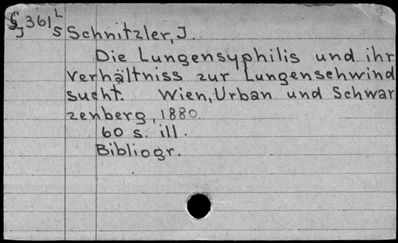 § 361 L
J S Schnitzler, J.
Die Lungensyphilis und ihr
verhältniss zur Lungenschwind
sucht. Wien, Urban und Schwar
zenberg, 1880.
60 s. ill.
Bibliogr.